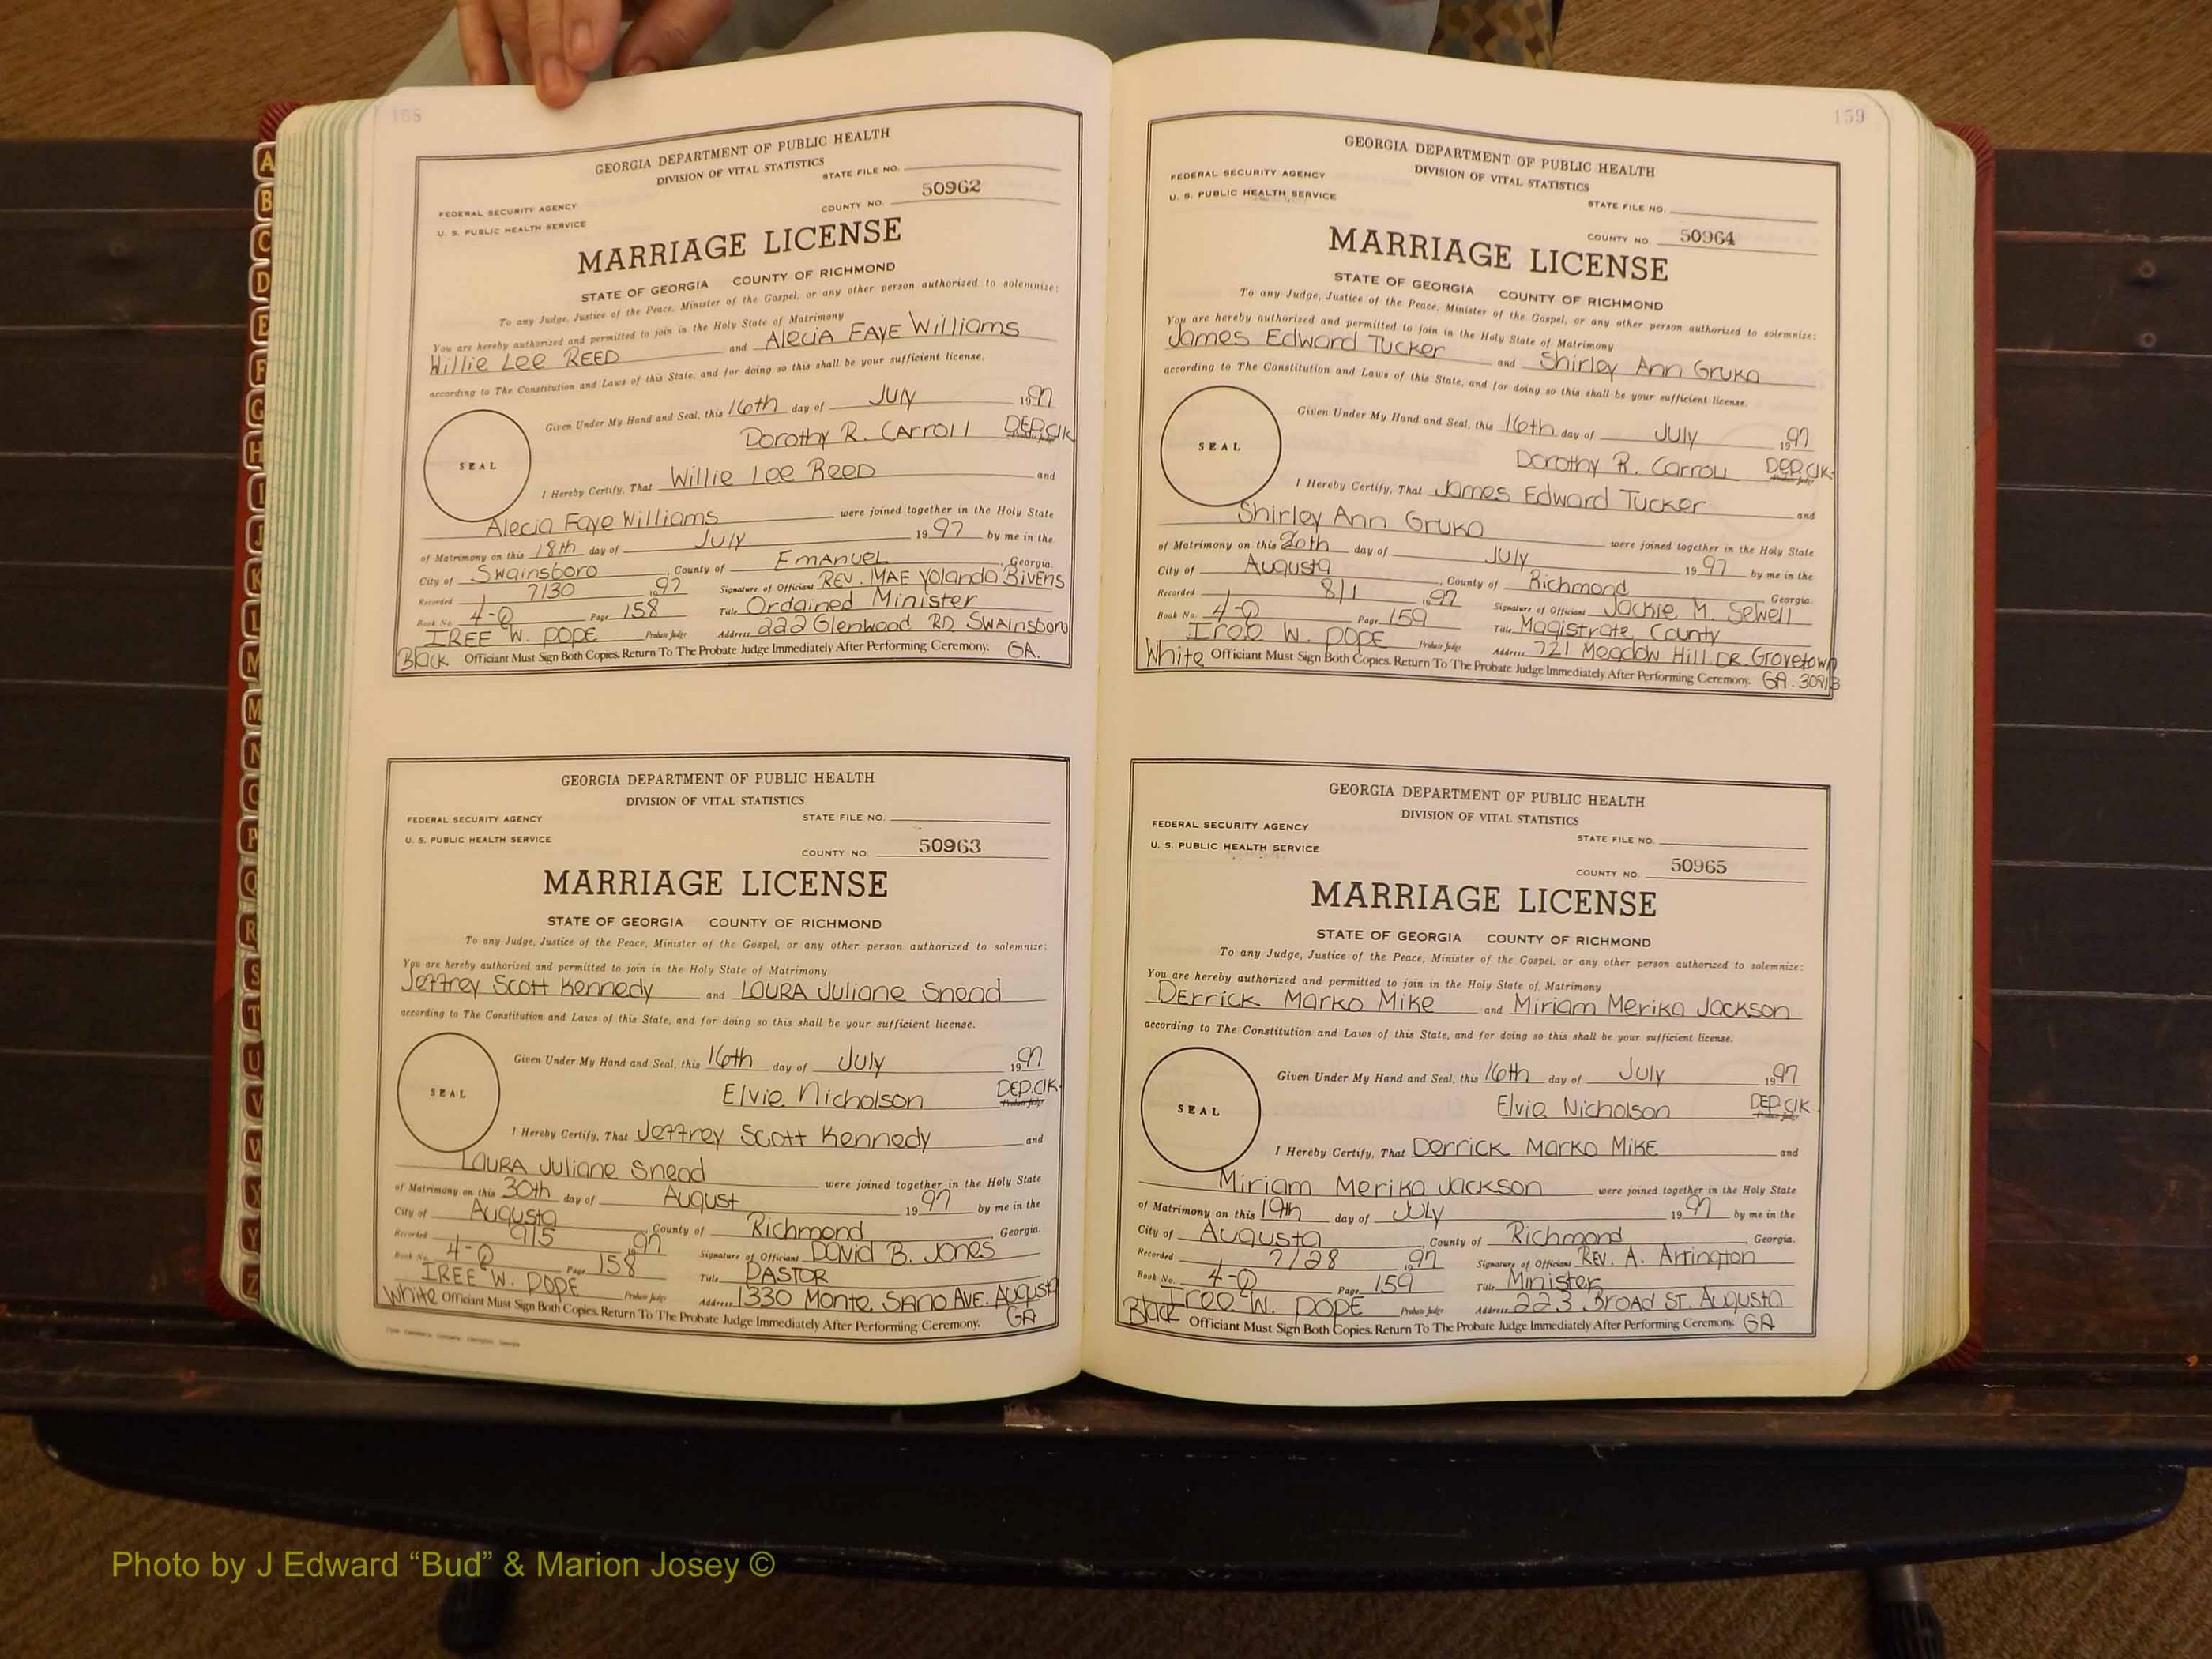 158
GEORGIA DEPARTMENT OF PUBLIC HEALTH
DIVISION OF VITAL STATISTICS
STATE FILE NO.
FEDERAL SECURITY AGENCY
U. S. PUBLIC HEALTH SERVICE
COUNTY NO. 50962
MARRIAGE LICENSE
STATE OF GEORGIA COUNTY OF RICHMOND
To any Judge, Justice of the Peace, Minister of the Gospel, or any other person authorized to solemnize:
You are hereby authorized and permitted to join in the Holy State of Matrimony
Willie Lee REED and Alecia FAYE Williams
according to The Constitution and Laws of this State, and for doing so this shall be your sufficient license.
Given Under My Hand and Seal, this 16th day of July 1997
Dorothy R. CArroll DEP.Clk
Probate Judge
SEAL
I Hereby Certify, That Willie Lee Reed and
Alecia Faye Williams were joined together in the Holy State
of Matrimony on this 18th day of July 1997 by me in the
City of Swainsboro, County of EmAnueL, Georgia.
Recorded 7/30 1997 Signature of Officiant REV. MAE Yolanda Bivens
Book No. 4-Q Page 158 Title Ordained Minister
IREE W. POPE Probate Judge Address 222 Glenwood RD SWAinsboro
Black Officiant Must Sign Both Copies. Return To The Probate Judge Immediately After Performing Ceremony. GA.
GEORGIA DEPARTMENT OF PUBLIC HEALTH
DIVISION OF VITAL STATISTICS
FEDERAL SECURITY AGENCY
STATE FILE NO.
U. S. PUBLIC HEALTH SERVICE
COUNTY NO. 50963
MARRIAGE LICENSE
STATE OF GEORGIA COUNTY OF RICHMOND
To any Judge, Justice of the Peace, Minister of the Gospel, or any other person authorized to solemnize:
You are hereby authorized and permitted to join in the Holy State of Matrimony
Jeffrey Scott Kennedy and LAURA Juliane Snead
according to The Constitution and Laws of this State, and for doing so this shall be your sufficient license.
Given Under My Hand and Seal, this 16th day of July 1997
Elvie Nicholson DEP.Clk.
Probate Judge
SEAL
I Hereby Certify, That Jeffrey Scott Kennedy and
LAURA Juliane Snead were joined together in the Holy State
of Matrimony on this 30th day of August 1997 by me in the
City of Augusta, County of Richmond, Georgia.
Recorded 9/5 1997 Signature of Officiant David B. Jones
Book No. 4-Q Page 158 Title PASTOR
IREE W. POPE Probate Judge Address 1330 Monte SAno AVE. August
White Officiant Must Sign Both Copies. Return To The Probate Judge Immediately After Performing Ceremony. GA
159
GEORGIA DEPARTMENT OF PUBLIC HEALTH
DIVISION OF VITAL STATISTICS
FEDERAL SECURITY AGENCY
U. S. PUBLIC HEALTH SERVICE
STATE FILE NO.
COUNTY NO. 50964
MARRIAGE LICENSE
STATE OF GEORGIA COUNTY OF RICHMOND
To any Judge, Justice of the Peace, Minister of the Gospel, or any other person authorized to solemnize:
You are hereby authorized and permitted to join in the Holy State of Matrimony
James Edward Tucker and Shirley Ann Gruka
according to The Constitution and Laws of this State, and for doing so this shall be your sufficient license.
Given Under My Hand and Seal, this 16th day of July 1997
Dorothy R. Carroll DEP.Clk.
Probate Judge
SEAL
I Hereby Certify, That James Edward Tucker and
Shirley Ann Gruka were joined together in the Holy State
of Matrimony on this 26th day of July 1997 by me in the
City of Augusta, County of Richmond Georgia.
Recorded 8/1 1997 Signature of Officiant Jackie M. Sewell
Book No. 4-Q Page 159 Title Magistrate, County
Iree W. POPE Probate Judge Address 721 Meadow Hill DR. Grovetown
White Officiant Must Sign Both Copies. Return To The Probate Judge Immediately After Performing Ceremony. GA. 30813
GEORGIA DEPARTMENT OF PUBLIC HEALTH
DIVISION OF VITAL STATISTICS
FEDERAL SECURITY AGENCY
STATE FILE NO.
U. S. PUBLIC HEALTH SERVICE
COUNTY NO. 50965
MARRIAGE LICENSE
STATE OF GEORGIA COUNTY OF RICHMOND
To any Judge, Justice of the Peace, Minister of the Gospel, or any other person authorized to solemnize:
You are hereby authorized and permitted to join in the Holy State of Matrimony
DErrick Marko Mike and Miriam Merika Jackson
according to The Constitution and Laws of this State, and for doing so this shall be your sufficient license.
Given Under My Hand and Seal, this 16th day of July 1997
Elvie Nicholson DEP.Clk.
Probate Judge
SEAL
I Hereby Certify, That Derrick Marko MikE and
Miriam Merika Jackson were joined together in the Holy State
of Matrimony on this 19th day of July 1997 by me in the
City of Augusta, County of Richmond, Georgia.
Recorded 7/28 1997 Signature of Officiant REV. A. Arrington
Book No. 4-Q Page 159 Title Minister
Iree W. POPE Probate Judge Address 223 BroAd ST. Augusta
Black Officiant Must Sign Both Copies. Return To The Probate Judge Immediately After Performing Ceremony. GA
A
B
C
D
E
F
G
H
I
J
K
L
M
M
N
O
P
Q
R
S
T
U
V
W
X
Y
Z
Photo by J Edward “Bud” & Marion Josey ©